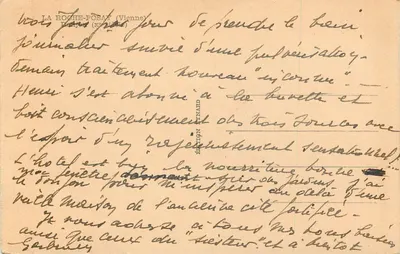 LA ROCHE-POSAY (Vienne)
fois par jour de prendre le bain
journalier suivie d'une pulvérisation.
Demain traitement nouveau inconnu".
Henri s'est abonné à la buvette et
boit consciencieusement des trois sources avec
l'espoir d'un rajeunissement sensationnel!
L'hôtel est bien la nourriture bonne
ma fenêtre des jardins j'ai
pour m'inspirer d'une
vieille maison de l'ancienne cité fortifiée.
Je vous adresse à tous nos bons baisers
ainsi que ceux du et à bientôt